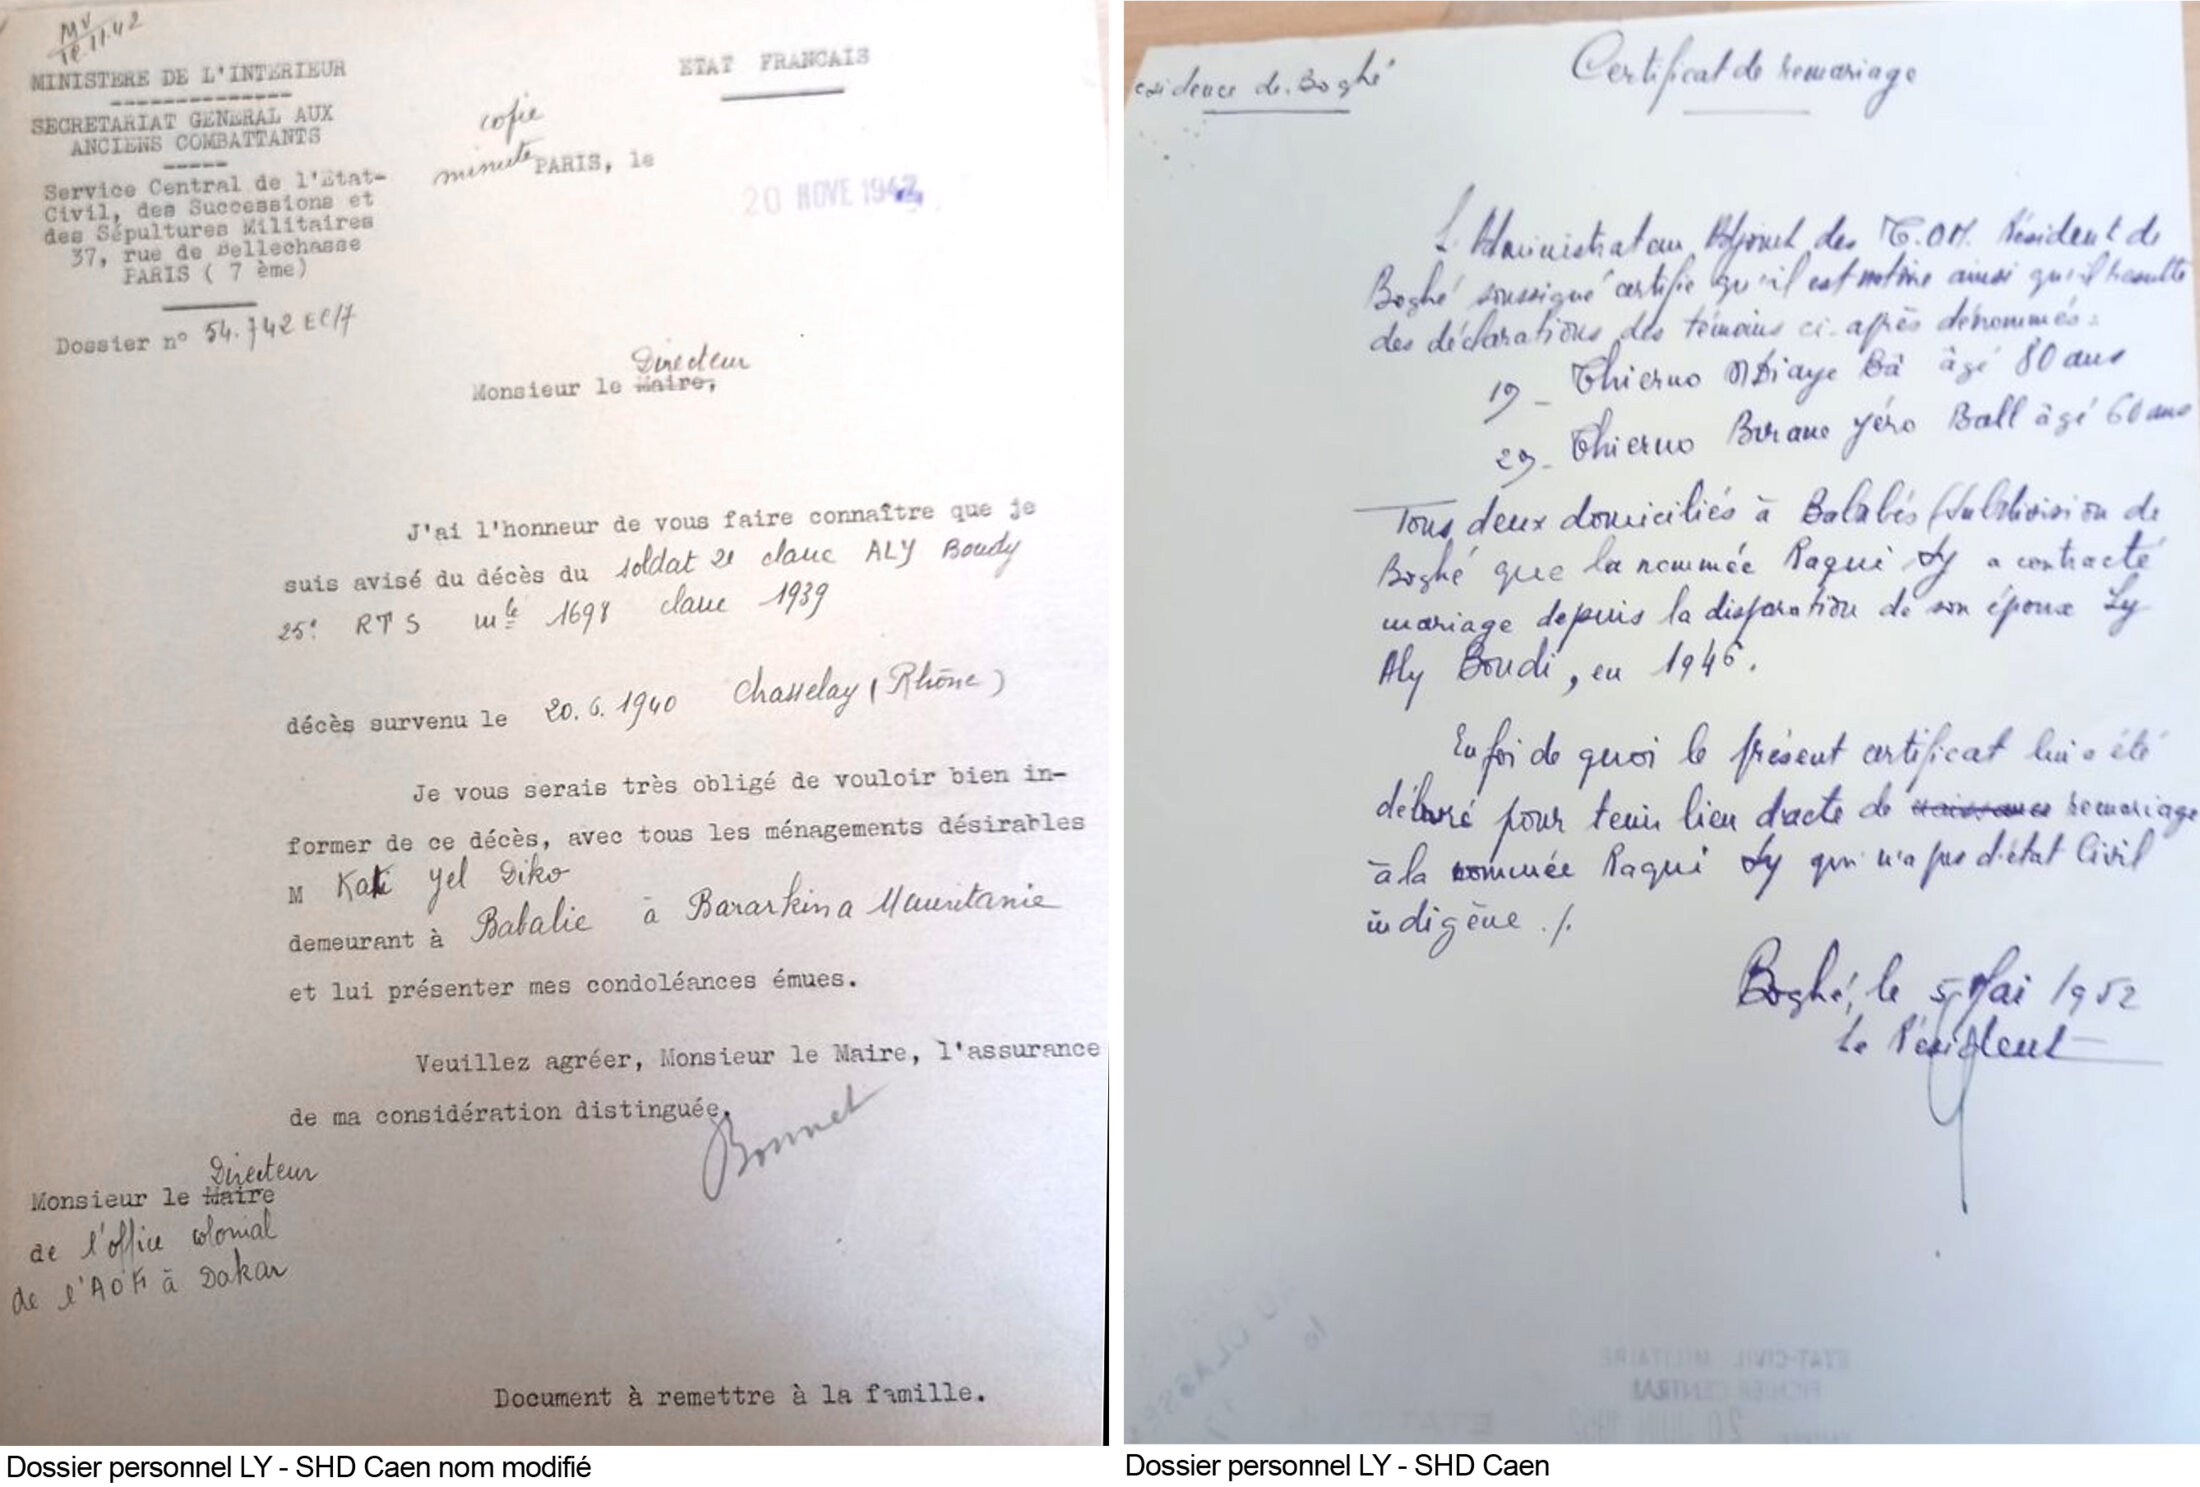 MV
12.11.42
MINISTERE DE L'INTERIEUR
SECRETARIAT GENERAL AUX
ANCIENS COMBATTANTS
Service Central de l'Etat-
Civil, des Successions et
des Sépultures Militaires
37, rue de Bellechasse
PARIS ( 7 ème)
Dossier n° 54.742 EC/7
ETAT FRANCAIS
copie
minute PARIS, le
20 NOVE 1942
Directeur
Monsieur le Maire,
J'ai l'honneur de vous faire connaître que je
suis avisé du décès du soldat 2e classe ALY Boudy
25e RTS mle 1698 classe 1939
décès survenu le 20.6.1940 Chasselay (Rhône)
Je vous serais très obligé de vouloir bien in-
former de ce décès, avec tous les ménagements désirables
M Kati yel Diko
demeurant à Babalie à Bararkina Mauritanie
et lui présenter mes condoléances émues.
Veuillez agréer, Monsieur le Maire, l'assurance
de ma considération distinguée.
Bonnet
Directeur
Monsieur le Maire
de l'office colonial
de l'AOF à Dakar
Document à remettre à la famille.
Dossier personnel LY - SHD Caen nom modifié
esidence de Boghé
Certificat de remariage
L'Administrateur Adjoint des T.O.M. Résident de
Boghé soussigné certifie qu'il est notoire ainsi qu'il résulte
des déclarations des témoins ci-après dénommés :
1°)- Thierno NDiaye Bâ âgé 80 ans
2°)- Thierno Birane Yéro Ball âgé 60 ans
Tous deux domiciliés à Balabés (Subdivision de
Boghé que la nommée Raqui Ly a contracté
mariage depuis la disparation de son époux Ly
Aly Boudi, en 1946.
En foi de quoi le présent certificat lui a été
délivré pour tenir lieu d'acte de naissance remariage
à la nommée Raqui Ly qui n'a pas d'état Civil
indigène ./.
Boghé, le 5 Mai 1952
Le Résident
ETAT-CIVIL MILITAIRE
FICHIER CENTRAL
Dossier personnel LY - SHD Caen